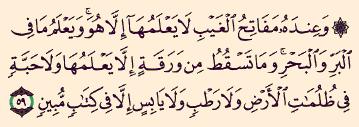 ۞ وَعِندَهُۥ مَفَاتِحُ ٱلْغَيْبِ لَا يَعْلَمُهَآ إِلَّا هُوَ ۚ وَيَعْلَمُ مَا فِى
ٱلْبَرِّ وَٱلْبَحْرِ ۚ وَمَا تَسْقُطُ مِن وَرَقَةٍ إِلَّا يَعْلَمُهَا وَلَا حَبَّةٍ
فِى ظُلُمَٰتِ ٱلْأَرْضِ وَلَا رَطْبٍ وَلَا يَابِسٍ إِلَّا فِى كِتَٰبٍ مُّبِينٍ ٥٩